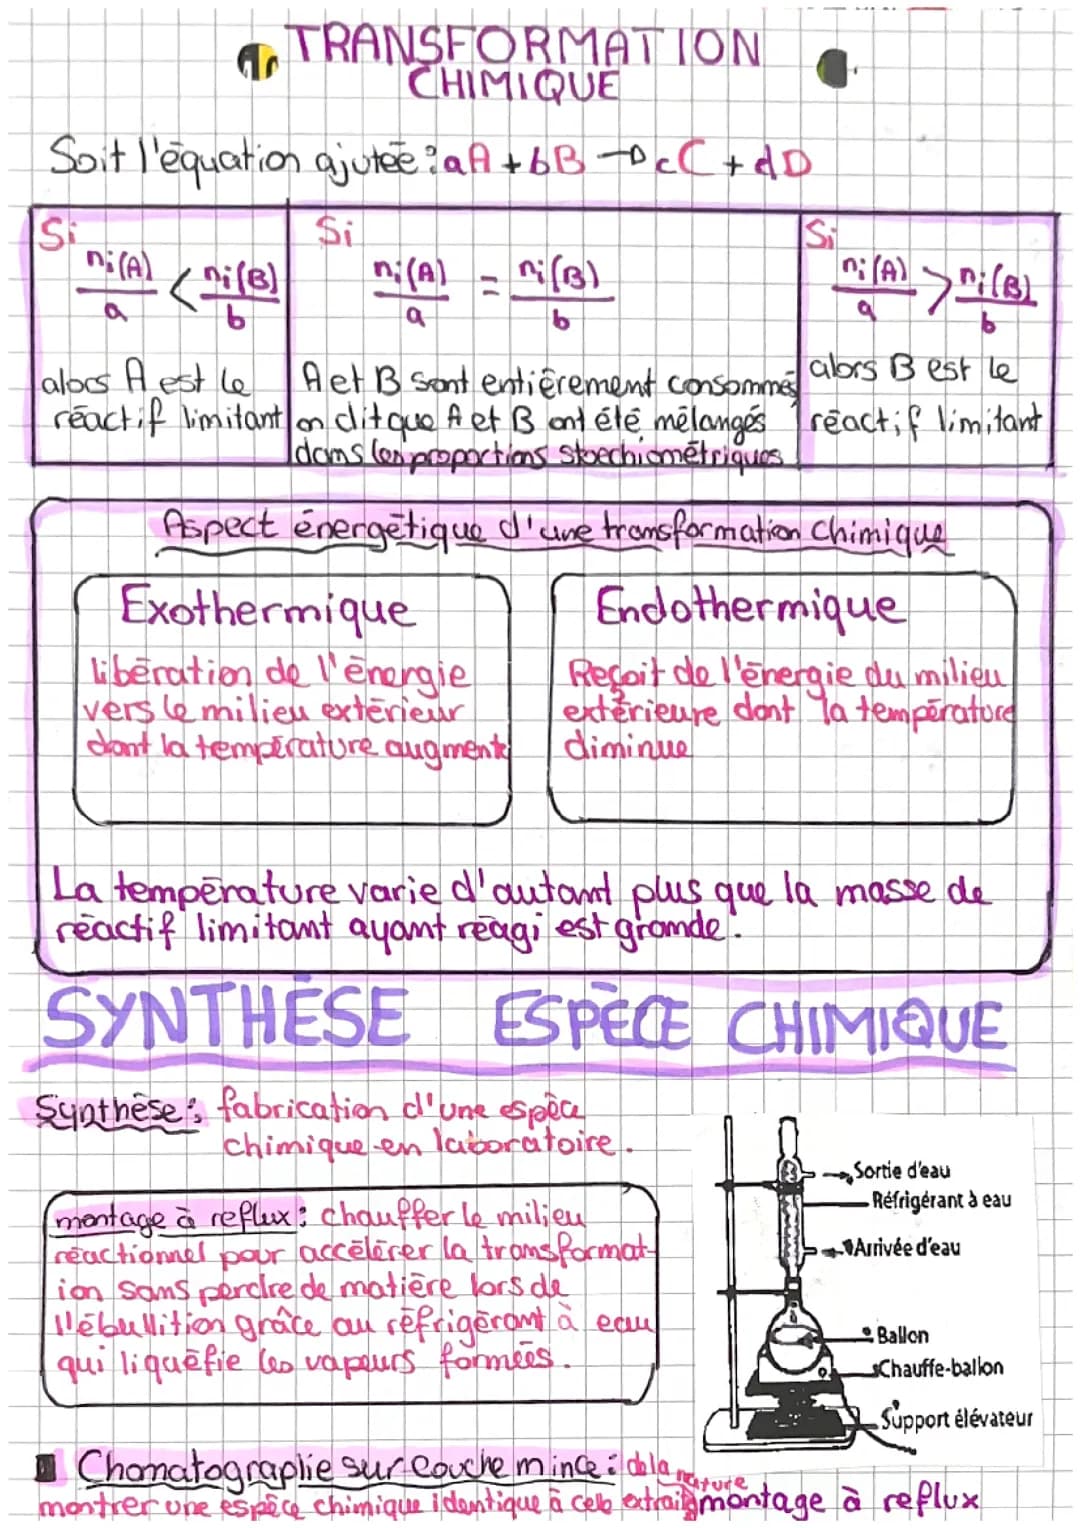 TRANSFORMATION
CHIMIQUE
Soit l'équation ajutée : aA + bB → cC + dD
Si
ni(A)/a < ni(B)/b
alors A est le
réactif limitant
Si
ni(A)/a = ni(B)/b
A et B sont entièrement consommés
on dit que A et B ont été mélangés
dans les proportions stoechiométriques
Si
ni(A)/a > ni(B)/b
alors B est le
réactif limitant
Aspect énergétique d'une transformation chimique
Exothermique
libération de l'énergie
vers le milieu extérieur
dont la température augmente
Endothermique
Reçoit de l'énergie du milieu
extérieure dont la température
diminue
La température varie d'autant plus que la masse de
réactif limitant ayant réagi est grande.
SYNTHÈSE ESPÈCE CHIMIQUE
Synthèse : fabrication d'une espèce
chimique en laboratoire.
montage à reflux : chauffer le milieu
réactionnel pour accélérer la transformat-
ion sans perdre de matière lors de
l'ébullition grâce au réfrigérant à eau
qui liquéfie les vapeurs formées.
Sortie d'eau
Réfrigérant à eau
Arrivée d'eau
Ballon
Chauffe-ballon
Support élévateur
Chomatographie sur couche mince : de la nature
montrer une espèce chimique identique à celle extraite
montage à reflux